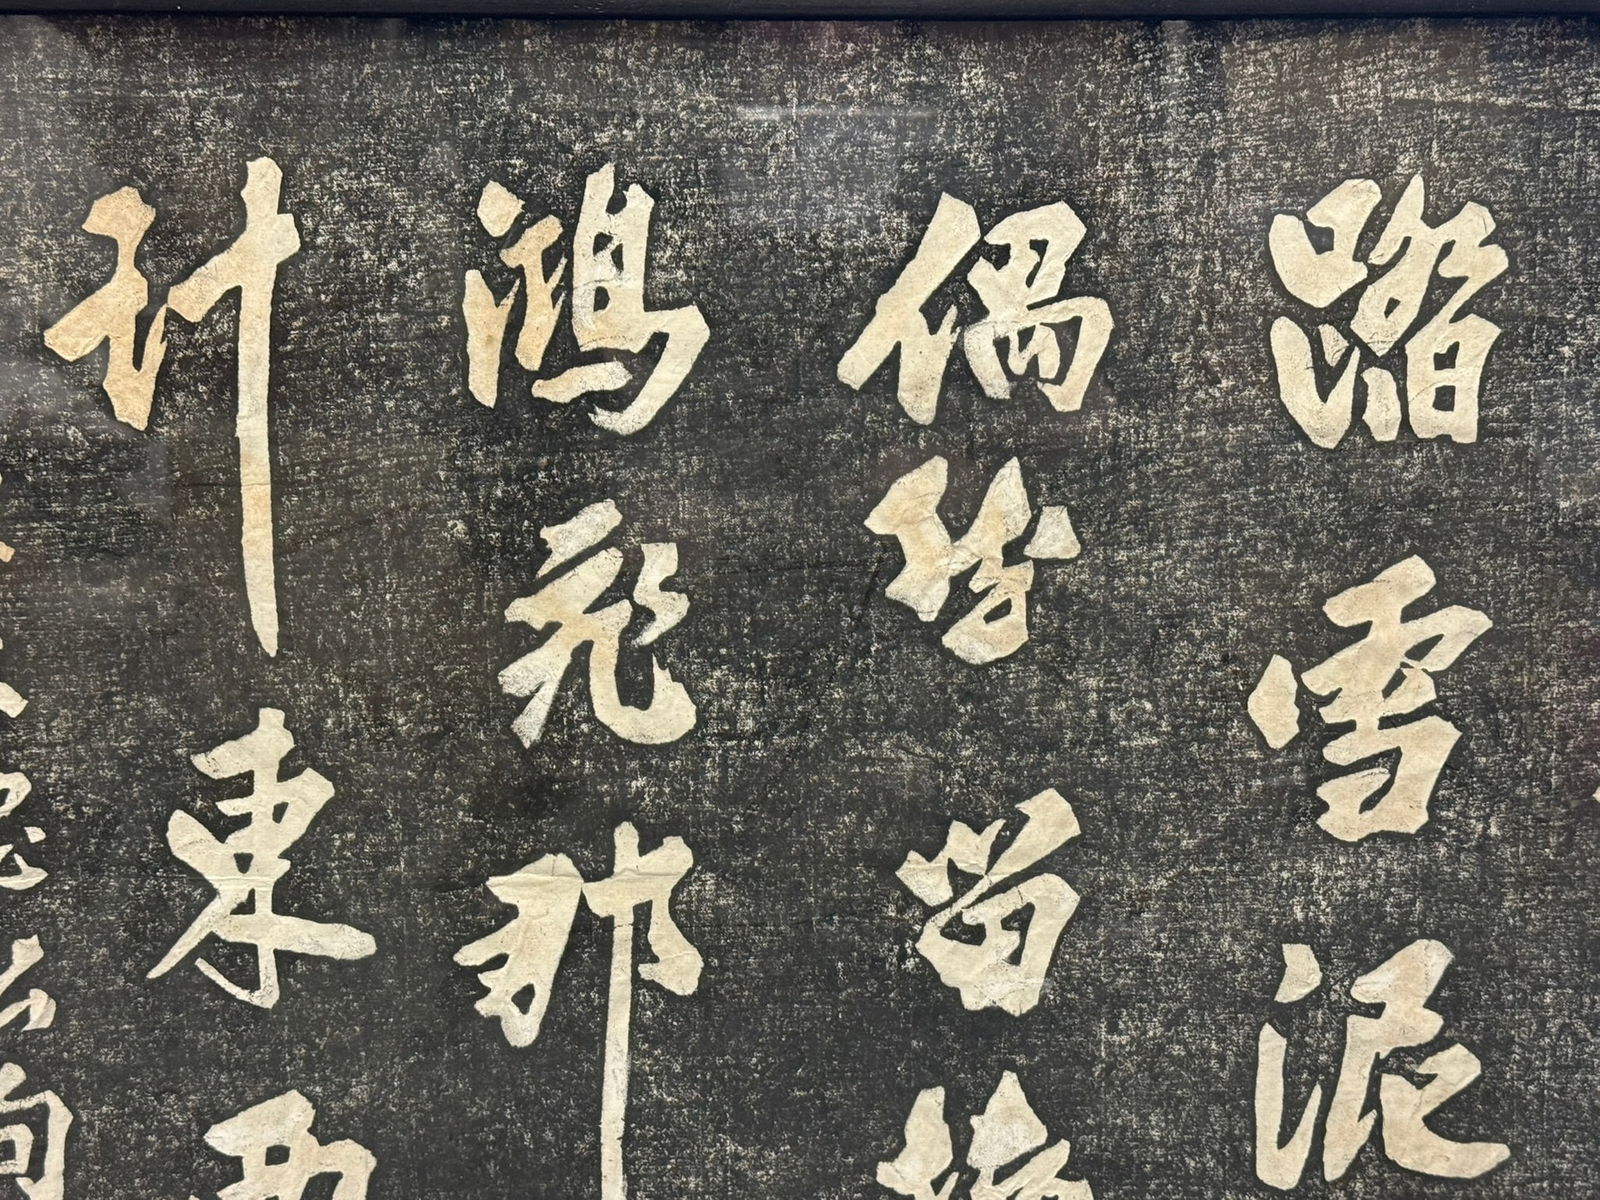 踏雪泥
偶然留指
鴻飛那
計東西